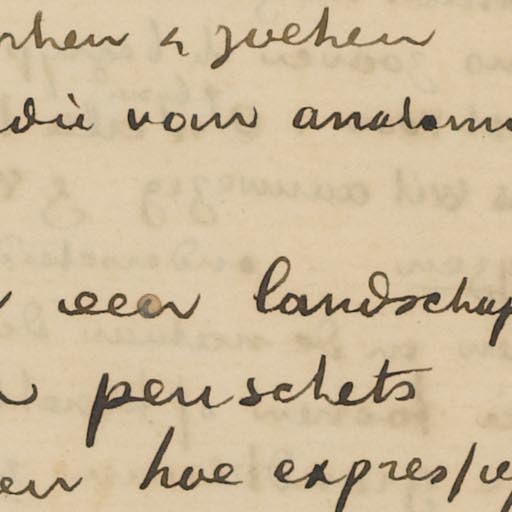 rken & zoeken
die van anatomi
een landschap
penschets
en hoe expressie